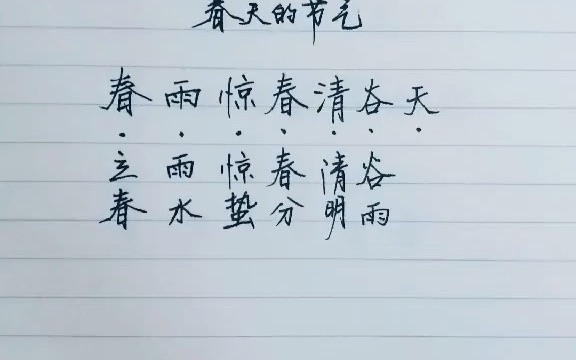 春天的节气
春雨惊春清谷天
立雨惊春清谷
春水蛰分明雨